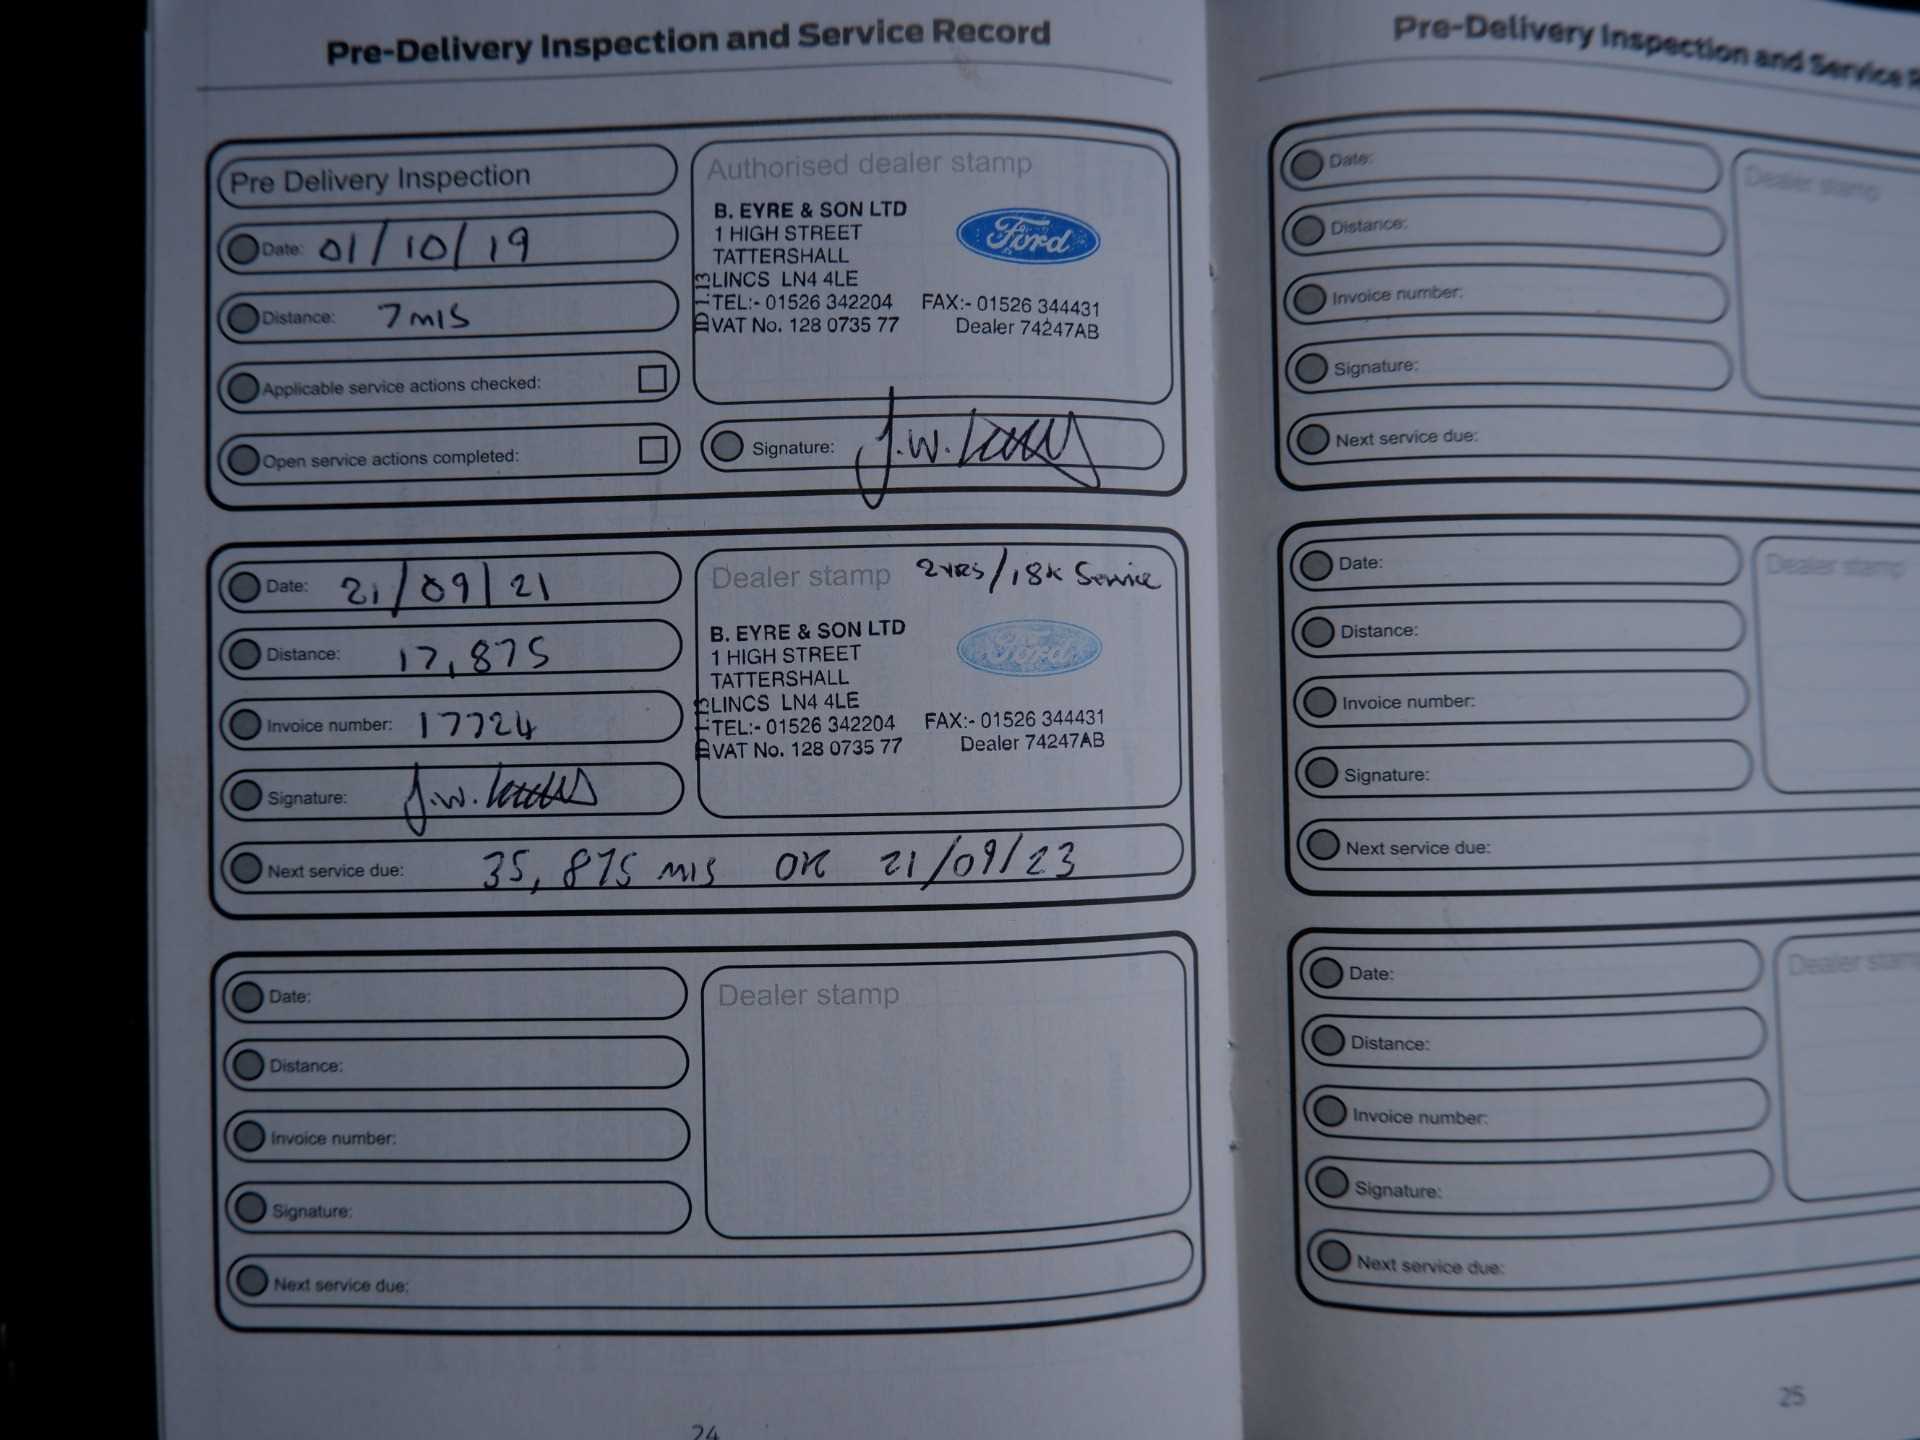 Pre-Delivery Inspection and Service Record
Pre Delivery Inspection
Date: 01/10/19
Distance: 7 MIS
Applicable service actions checked:
Open service actions completed:
Authorised dealer stamp
B. EYRE & SON LTD
1 HIGH STREET
TATTERSHALL
LINCS LN4 4LE
TEL:- 01526 342204 FAX:- 01526 344431
VAT No. 128 0735 77 Dealer 74247AB
Ford
Signature: J.W.
Date: 21/09/21
Distance: 17,875
Invoice number: 17724
Signature: J.W.
Dealer stamp 2YRS/18K Service
B. EYRE & SON LTD
1 HIGH STREET
TATTERSHALL
LINCS LN4 4LE
TEL:- 01526 342204 FAX:- 01526 344431
VAT No. 128 0735 77 Dealer 74247AB
Ford
Next service due: 35,875 MIS OR 21/09/23
Date:
Distance:
Invoice number:
Signature:
Dealer stamp
Next service due:
24
Pre-Delivery Inspection and Service
Date:
Distance:
Invoice number:
Signature:
Dealer stamp
Next service due:
Date:
Distance:
Invoice number:
Signature:
Dealer stamp
Next service due:
Date:
Distance:
Invoice number:
Signature:
Dealer stamp
Next service due:
25